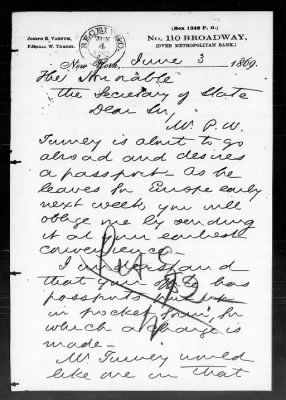 (Box 1249 P. O.)
JOSEPH B. VARNUM,
No. 110 BROADWAY,
(OVER METROPOLITAN BANK.)
RECEIVED
JUN
4
New York, June 3 1869.
The Honorable
The Secretary of State
Dear Sir,
Mr. P. W.
Turney is about to go
abroad and desires
a passport. As he
leaves for Europe early
next week, you will
oblige me by sending
it at your earliest
convenience—
I understand
that your office has
passports put up
in pocket form, for
which a charge is
made—
Mr Turney would
like one in that